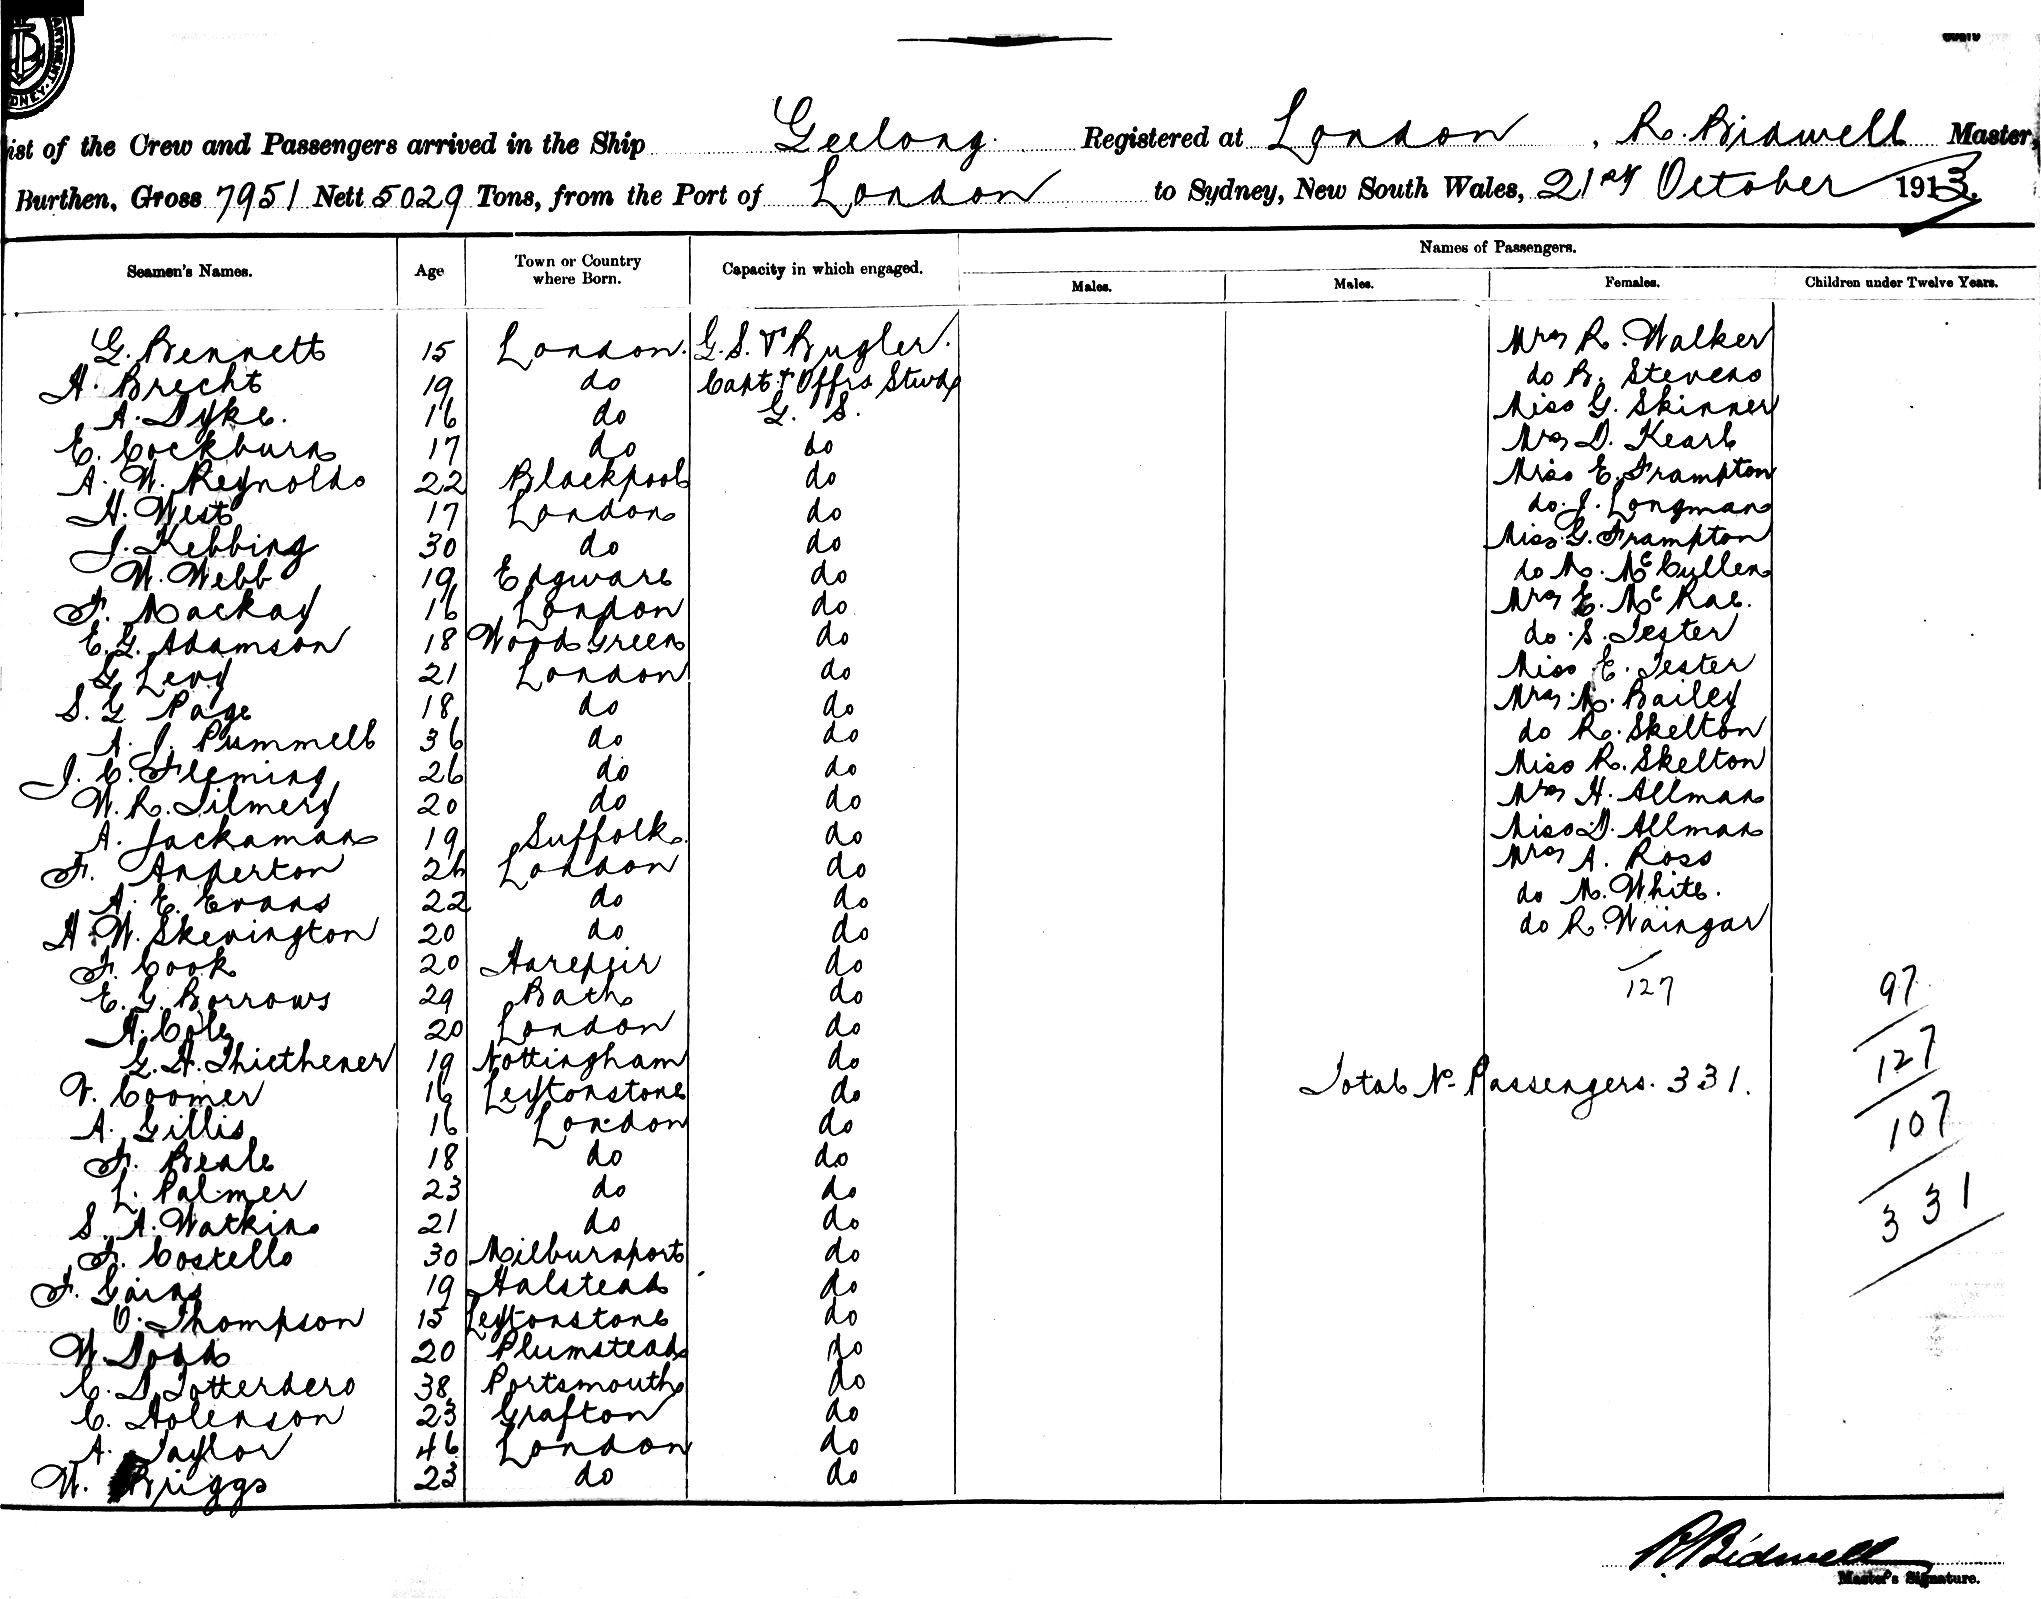 ist of the Crew and Passengers arrived in the Ship Geelong. Registered at London, R. Bidwell Master,
Burthen, Gross 7951 Nett 5029 Tons, from the Port of London to Sydney, New South Wales, 21st October 1913.
Names of Passengers.
Seamen's Names. Age Town or Country where Born. Capacity in which engaged. Males. Males. Females. Children under Twelve Years.
G. Bennett 15 London. G.S. & Bugler. Mrs R. Walker
H. Brecht 19 do Capt & Offrs Stwd do B. Stevens
A. Dyke. 16 do G. S. Miss G. Skinner
E. Cockburn 17 do do Mrs D. Kearl
A. W. Reynolds 22 Blackpool do Miss E. Frampton
H. West 17 London do do. J. Longman
J. Kebbing 30 do do Miss G. Frampton
W. Webb 19 Edgware do do M. McCullen
F. Mackay 16 London do Mrs E. McRae.
E. G. Adamson 18 Wood Green do do. S. Tester
G. Levy 21 London do Miss E. Tester
S. G. Page 18 do do Mrs M. Bailey
A. J. Pummell 36 do do do R. Skelton
J. C. Fleming 26 do do Miss R. Skelton
W. R. Tilmery 20 do do Mrs H. Allman
A. Jackaman 19 Suffolk. do Miss D. Allman
F. Anderton 26 London do Mrs A. Ross
A. E. Evans 22 do do do M. White.
H. W. Skevington 20 do do do R. Waingar
F. Cook 20 do
E. G. Borrows 29 Bath do 127 97
A. Cole 20 London do
G. H. Thiethener 19 Nottingham do 127
V. Coomer 16 Leytonstone do Total No Passengers. 331.
A. Gillis 16 London do 107
F. Beale 18 do do
L. Palmer 23 do do
S. A. Watkins 21 do do 331
F. Costello 30 Milburnport do
F. Gains 19 Halstead do
O. Thompson 15 Leytonstone do
W. Dodd 20 Plumstead do
C. D. Totterdero 38 Portsmouth do
C. Holenson 23 Grafton do
A. Taylor 46 London do
W. Briggs 23 do do
R Bidwell
Master's Signature.